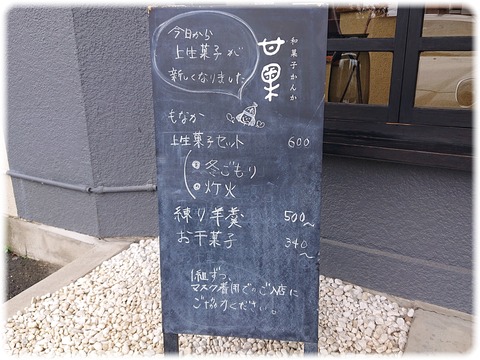 今日から
上生菓子が
新しくなりました
和菓子かんか
甘果
もなか
上生菓子セット 600
冬ごもり
灯火
練り羊羹 500〜
お干菓子 340〜
1組ずつ、
マスク着用でのご入店に
ご協力ください。